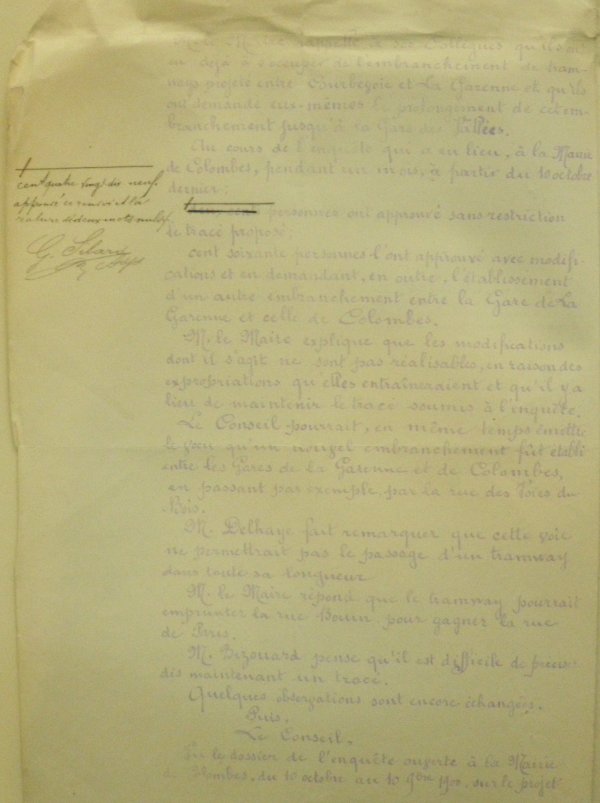 M. le Maire rappelle à ses Collègues qu'ils ont
eu déjà à s'occuper de l'embranchement de tram-
ways projeté entre Courbevoie et La Garenne et qu'ils
ont demandé eux-mêmes le prolongement de cet em-
branchement jusqu'à la Gare des Vallées.
Au cours de l'enquête qui a eu lieu, à la Mairie
de Colombes, pendant un mois, à partir du 10 octobre
dernier:
cent quatre vingt dix neuf.
approuvé ce renvoi et la
rature de deux mots nuls
personnes ont approuvé sans restriction
le tracé proposé;
cent soixante personnes l'ont approuvé avec modifi-
cations et en demandant, en outre, l'établissement
d'un autre embranchement entre la Gare de La
Garenne et celle de Colombes.
M. le Maire explique que les modifications
dont il s'agit ne sont pas réalisables, en raison des
expropriations qu'elles entraîneraient et qu'il y a
lieu de maintenir le tracé soumis à l'enquête.
Le Conseil pourrait, en même temps émettre
le vœu qu'un nouvel embranchement fût établi
entre les Gares de la Garenne et de Colombes,
en passant par exemple, par la rue des Voies du
Bois.
M. Delhaye fait remarquer que cette voie
ne permettrait pas le passage d'un tramway
dans toute sa longueur
M. le Maire répond que le tramway pourrait
emprunter la rue Bouin pour gagner la rue
de Paris.
M. Bezouard pense qu'il est difficile de préciser
dès maintenant un tracé.
Quelques observations sont encore échangées.
Puis,
Le Conseil,
Vu le dossier de l'enquête ouverte à la Mairie
de Colombes, du 10 octobre au 10 9bre 1900, sur le projet